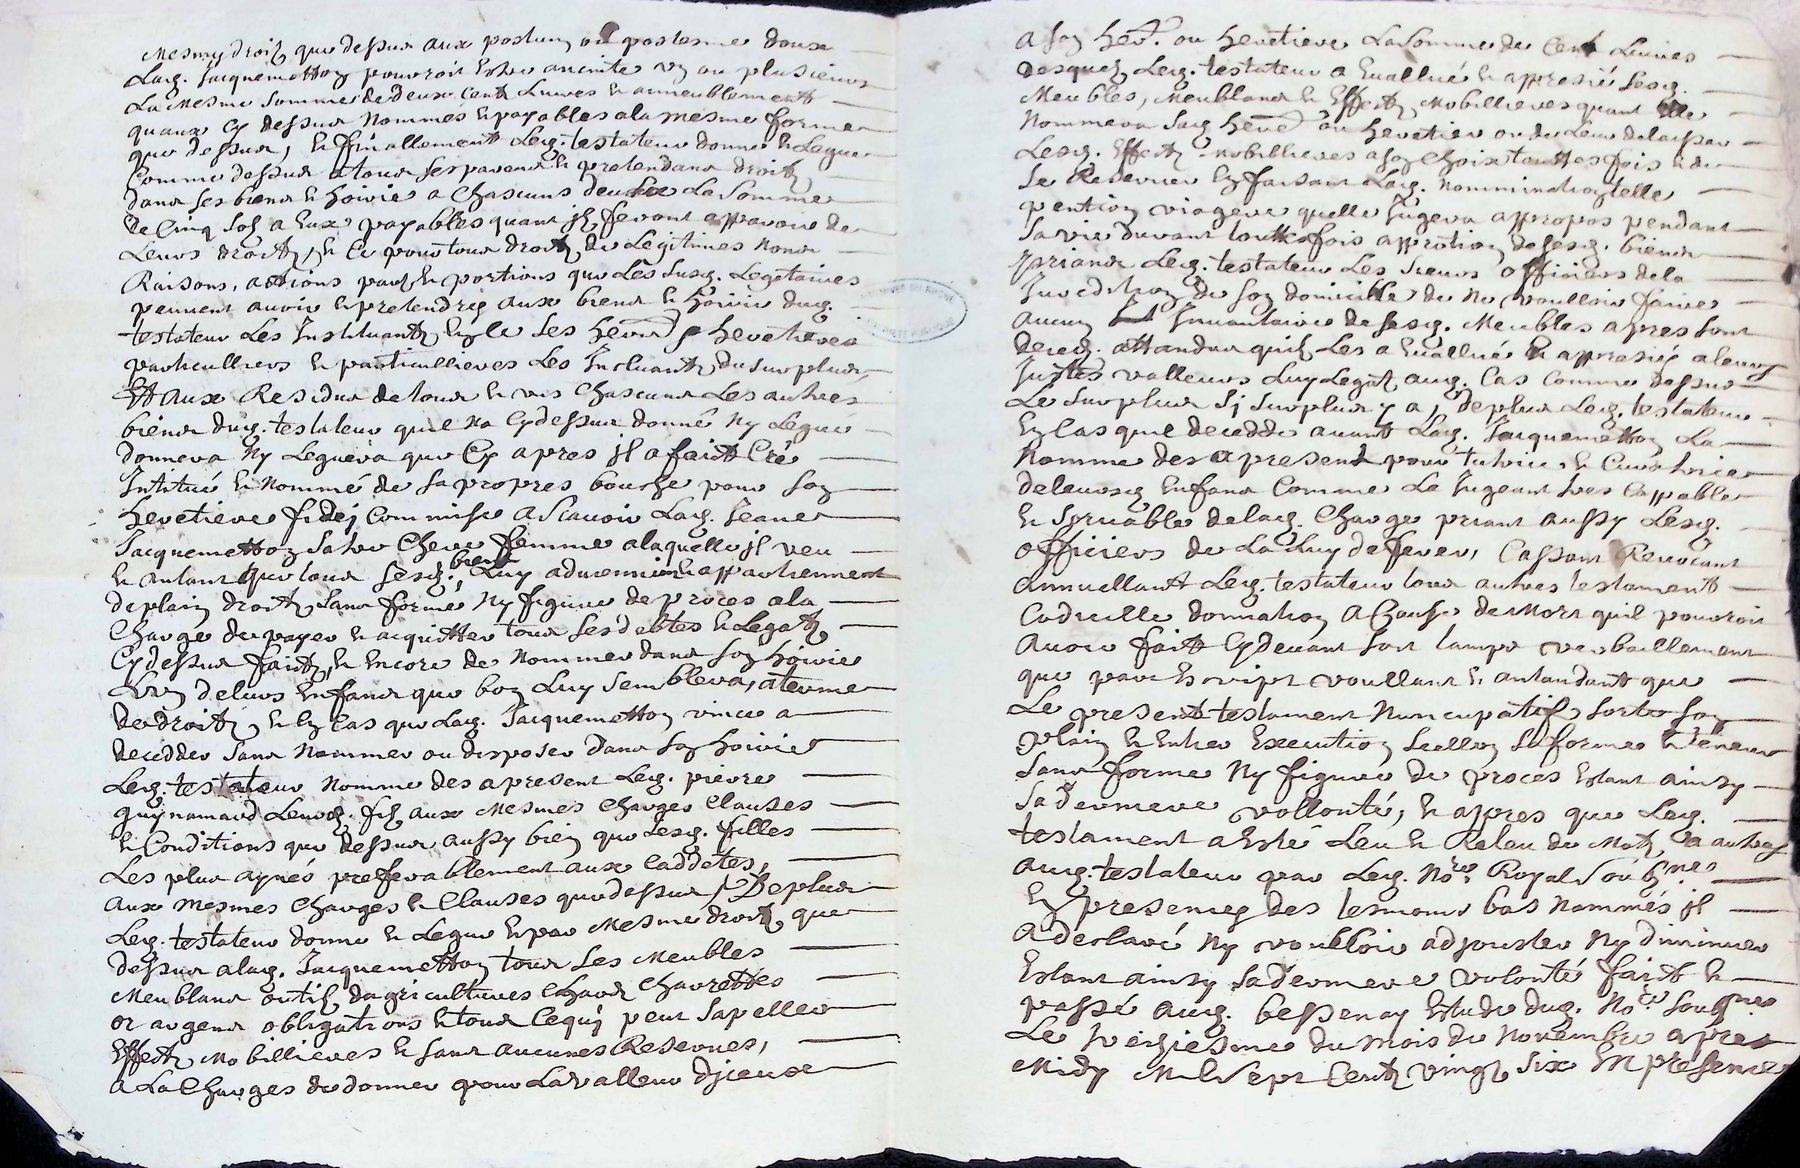 Mesmy droit que dessus aux postumes ou postesme dousse
Lad. Jacquemetton pourroit Estre anceinte un ou plusieurs
La Mesme Somme de deux Cent Livres & ameublement
quaux Cy dessus Nommes & payables a la mesme forme
que dessus, & finallement Led. testateur donne & Legue
Comme dessus a tous ses parens & pretendans droits
dans ses biens & hoirie a Chascuns deux La Somme
de Cinq Sols a Eux payables quant jls feront apparoir de
Leurs droits, & Ce pour tous droits de Legitimes Noms
Raisons, actions parts & portions que Les Susd. Legataires
peuvent avoir & pretendre aux biens & hoirie dud.
testateur Les Instituants en ce Ses herit. & heretieres
particulliers & particullieres Les Excluants du surplus,
Et Aux Residus de tous & uns Chascuns Les autres
biens dud. testateur quil Na Cy dessus donné Ny Legue
donnera Ny Leguera que Cy apres jl a faict Cré
Intitué & Nommé de sa propres bouche pour Son
heretiere fidej Commisse A Scavoir Lad. Jeane
Jacquemetton Sa tres Chere femme a laquelle jl veu
& autant que tous sesd. biens Luy adviennie & appartiennent
de plain droit, Sans forme Ny figure de proces a la
Charge de payer & acquitter tous ses debtes & Legats
Cy dessus faits, & Encore de Nommer dans son hoirie
Lun de leurs Enfans que bon Luy Semblera, a terme
de droit, & En Cas que Lad. Jacquemetton vince a
decedder Sans Nommer ou disposer dans Son hoirie
Led. testateur Nomme des apresent Led. pierre
guynamard Leurd. fils aux Mesmes Charges Clauses
& Conditions que dessus aussy bien que Lesd. filles
Les plus aynés preferablement aux Caddetes,
aux Mesmes Charges & Clauses que dessus, De plus
Led. testateur donne & Legue & par Mesme droit que
dessus a lad. Jacquemetton tous Les Meubles
Meublans outils dagricultures Chars Charettes
or argens obligations & tous Ce quj peut Sapeller
Effects Mobillieres & sans aucunes Reserves,
A La Charges de donner pour La valleur djceux
A Son herit. ou heretiere La Somme de Cent Livres
desquels Led. testateur a Evallué & appresié Lesd.
Meubles, Meublans & Effects Mobillieres quant Elle
Nommera Sond herit. ou heretier ou de Leur delaisser
Lesd. Effects Mobillieres a son Choix touttes fois & de
Se Reserver En faisant Lad. Nommination telle
pention viagere quelle Jugera appropos pendant
Sa vie durant touttesfois apportion de sesd. biens
priant Led. testateur Les Sieurs officiers de la
Juredition de Son domicille de Ne voulloir faire
aucun Invantaire de sesd. Meubles apres Son
deced. attandus quil Les a Evallué & appresié a leurs
Justes valleurs Luy Legant aud. Cas Comme dessus
Le surplus Sj surplus y a, de plus Led. testateur
En Cas quil decedde avant Lad. Jacquemetton La
Nomme des apresent pour tutrice & Curatrice
de leursd Enfans Comme La Jugeant tres Cappable
& Servable de lad. Charge priant aussy Lesd.
officiers de La Luy defferer, Cassant Revocant
Annullant Led. testateur tous autres testament
Codicille donnation A Cause de Mort quil pourroit
Avoir fait Cy devant soit verballement
que par Escript voullant & antandant que
Le present testament Nuncupatif, Sorte son
plain & Entier Execution Scellon Sa forme & teneur
Sans forme Ny figure de proces Estant ainsy
Sa derniere vollonté, & apres que Led.
testament a Esté Leu & Releu de Mots a autres
aud. testateur par Led. Nore. Royal Soubsnes
En presences des tesmoins bas Nommés jl
A declaré Ny voulloir adjouster Ny diminuer
Estant ainsy Sa derniere volonté fait &
passé aud. bessenay Estude dud. Nore Soubsnes
Le treiziesme du Mois de Novembre apres
Midy Mil Sept Cents vingt Six En presence